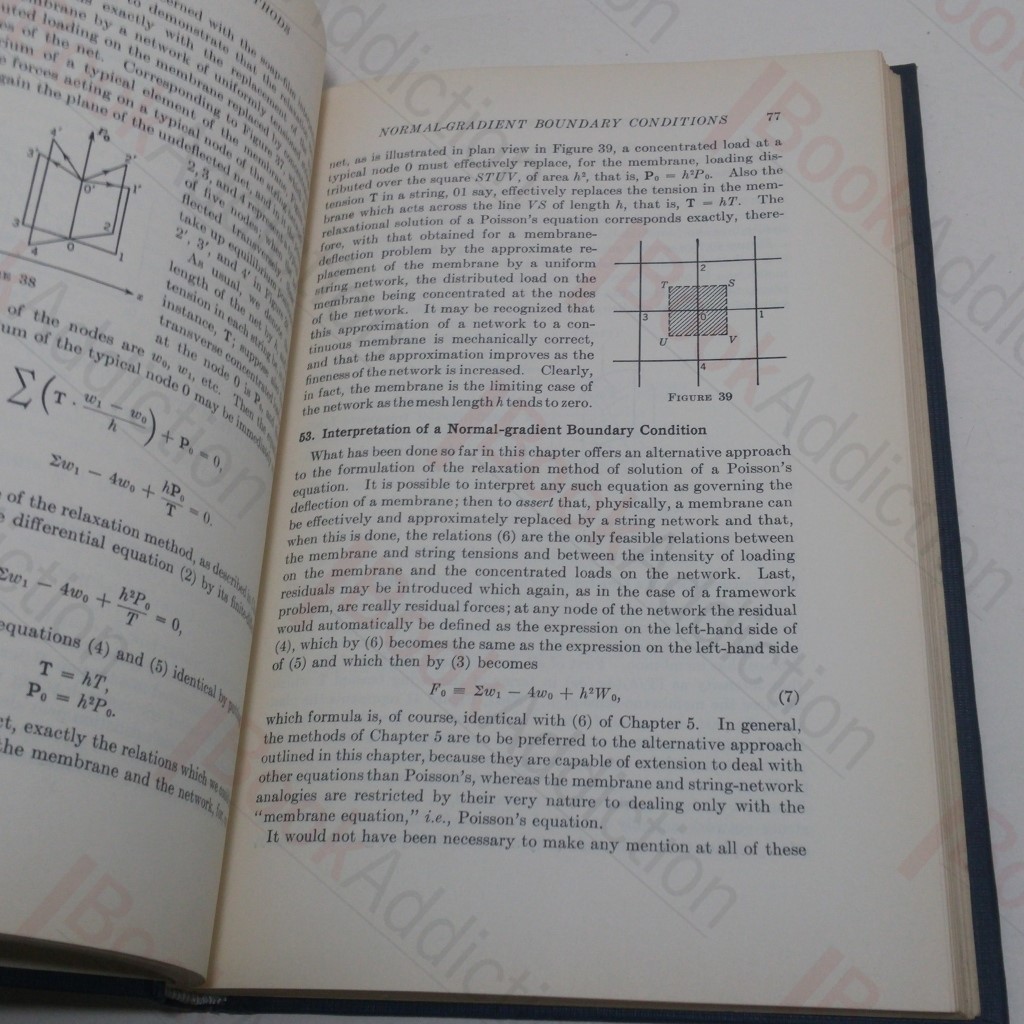 THODS
erned with the soap-film
to demonstrate that the
is exactly with the replacement of the
mbrane by a network of uniformly
uted loading on the membrane replaced by
es of the net. Corresponding to Figure 37,
rium of a typical element of the membrane,
e forces acting on a typical node of the string
gain the plane of the undeflected net, and is
4' P₀ 2'
3' 0' 1'
3 2
4 0 1
x
RE 38
2, 3, and 4 represent
of five nodes; when
flected transversely
take up equilibrium
2', 3', and 4' in Figure
As usual, we denote
length of the net by
tension in each string
instance, T; suppose
transverse concentrated
at the node 0 is P₀
of the nodes are w₀, w₁, etc. Then the
um of the typical node 0 may be immediately
∑(T · (w₁ − w₀)/h) + P₀ = 0,
Σw₁ − 4w₀ + hP₀/T = 0.
of the relaxation method, as described
e differential equation (2) by its finite
Σw₁ − 4w₀ + h²P₀/T = 0,
equations (4) and (5) identical by
T = hT,
P₀ = h²P₀.
ct, exactly the relations which we
the membrane and the network, for
NORMAL-GRADIENT BOUNDARY CONDITIONS 77
net, as is illustrated in plan view in Figure 39, a concentrated load at a
typical node 0 must effectively replace, for the membrane, loading dis-
tributed over the square STUV, of area h², that is, P₀ = h²P₀. Also the
tension T in a string, 01 say, effectively replaces the tension in the mem-
brane which acts across the line VS of length h, that is, T = hT. The
relaxational solution of a Poisson's equation corresponds exactly, there-
fore, with that obtained for a membrane-
deflection problem by the approximate re-
placement of the membrane by a uniform
string network, the distributed load on the
membrane being concentrated at the nodes
of the network. It may be recognized that
this approximation of a network to a con-
tinuous membrane is mechanically correct,
and that the approximation improves as the
fineness of the network is increased. Clearly,
in fact, the membrane is the limiting case of
the network as the mesh length h tends to zero.
2
T S
3 0 1
U V
4
FIGURE 39
53. Interpretation of a Normal-gradient Boundary Condition
What has been done so far in this chapter offers an alternative approach
to the formulation of the relaxation method of solution of a Poisson's
equation. It is possible to interpret any such equation as governing the
deflection of a membrane; then to assert that, physically, a membrane can
be effectively and approximately replaced by a string network and that,
when this is done, the relations (6) are the only feasible relations between
the membrane and string tensions and between the intensity of loading
on the membrane and the concentrated loads on the network. Last,
residuals may be introduced which again, as in the case of a framework
problem, are really residual forces; at any node of the network the residual
would automatically be defined as the expression on the left-hand side of
(4), which by (6) becomes the same as the expression on the left-hand side
of (5) and which then by (3) becomes
F₀ ≡ Σw₁ − 4w₀ + h²W₀, (7)
which formula is, of course, identical with (6) of Chapter 5. In general,
the methods of Chapter 5 are to be preferred to the alternative approach
outlined in this chapter, because they are capable of extension to deal with
other equations than Poisson's, whereas the membrane and string-network
analogies are restricted by their very nature to dealing only with the
"membrane equation," i.e., Poisson's equation.
It would not have been necessary to make any mention at all of these
BookAddiction